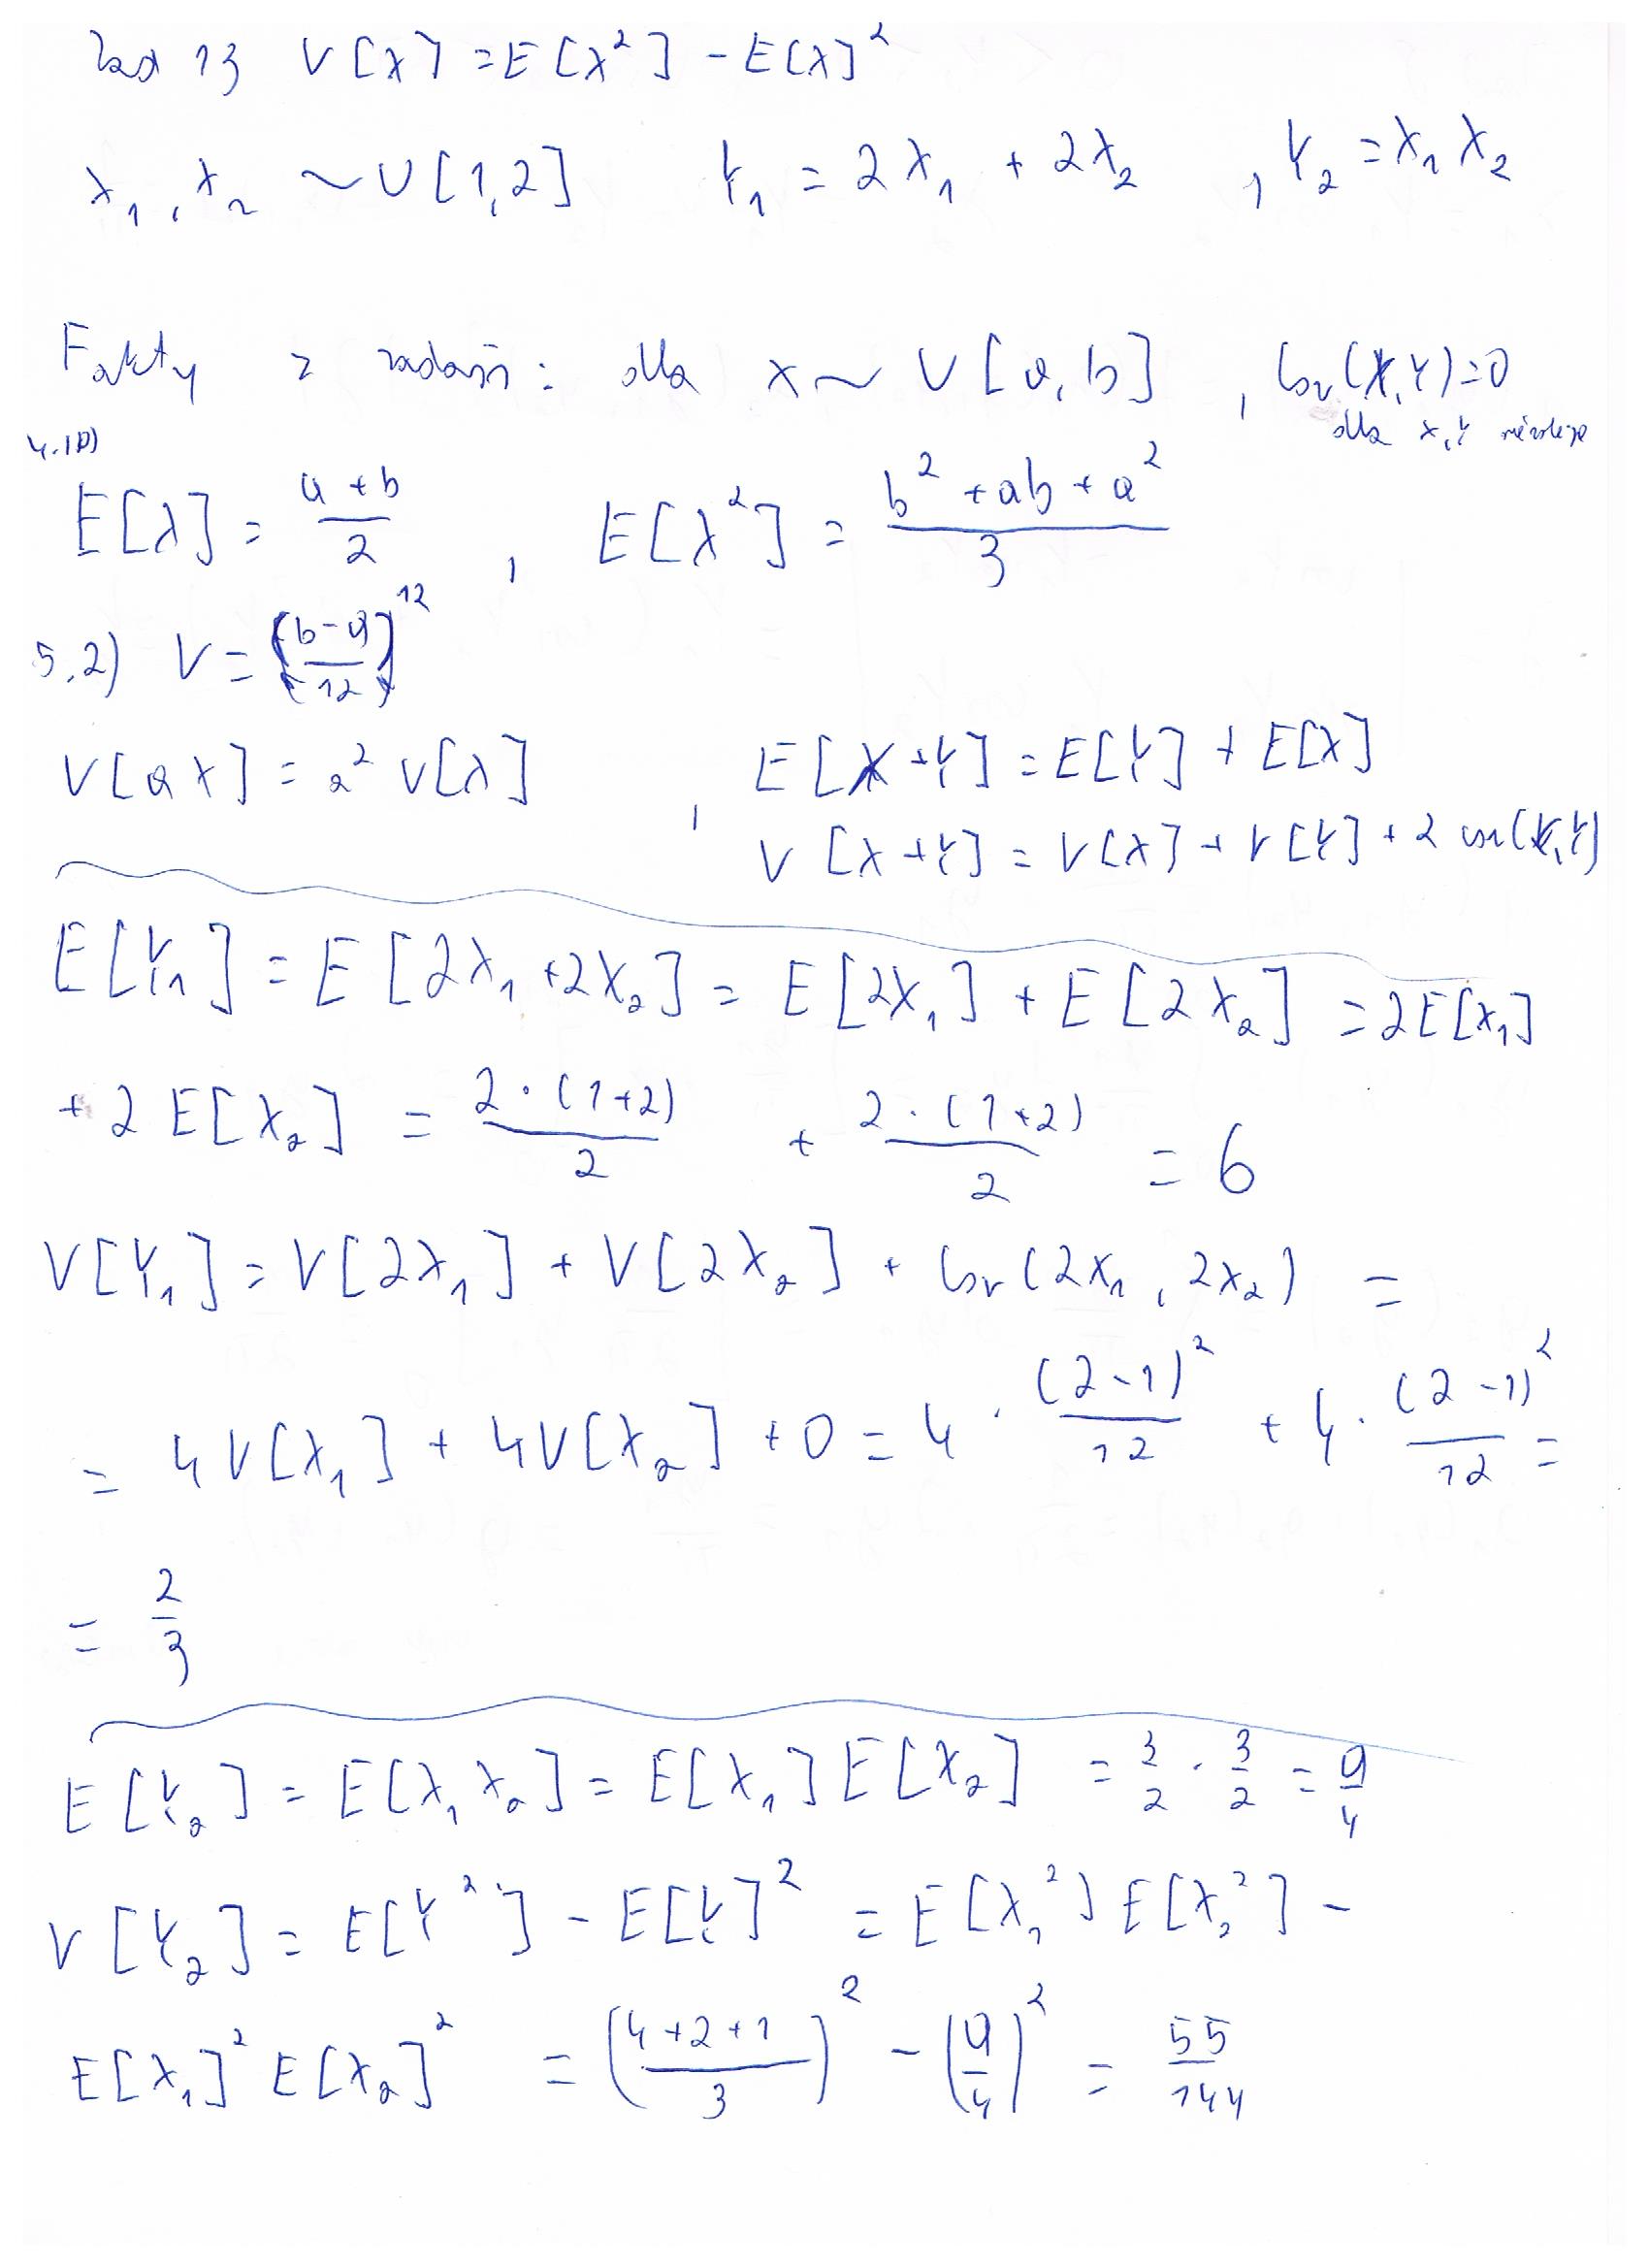 Zad 13 V[X] = E[X²] - E[X]²
X₁, X₂ ~ U[1,2] Y₁ = 2X₁ + 2X₂ , Y₂ = X₁X₂
Fakty z zadań: dla X ~ U[a,b] , Cov(X,Y)=0
dla X,Y niezależne
4.1b)
E[X] = (a+b)/2 , E[X²] = (b² + ab + a²)/3
5.2) V = ((b-a)/12)^12
V[aX] = a² V[X] , E[X+Y] = E[Y] + E[X]
V[X+Y] = V[X] + V[Y] + 2 cov(X,Y)
E[Y₁] = E[2X₁ + 2X₂] = E[2X₁] + E[2X₂] = 2E[X₁]
+ 2E[X₂] = 2·(1+2)/2 + 2·(1+2)/2 = 6
V[Y₁] = V[2X₁] + V[2X₂] + Cov(2X₁, 2X₂) =
= 4V[X₁] + 4V[X₂] + 0 = 4·(2-1)²/12 + 4·(2-1)²/12 =
= 2/3
E[Y₂] = E[X₁X₂] = E[X₁]E[X₂] = 3/2 · 3/2 = 9/4
V[Y₂] = E[Y²] - E[Y]² = E[X₁²]E[X₂²] -
E[X₁]² E[X₂]² = ((4+2+1)/3)² - (9/4)² = 55/144